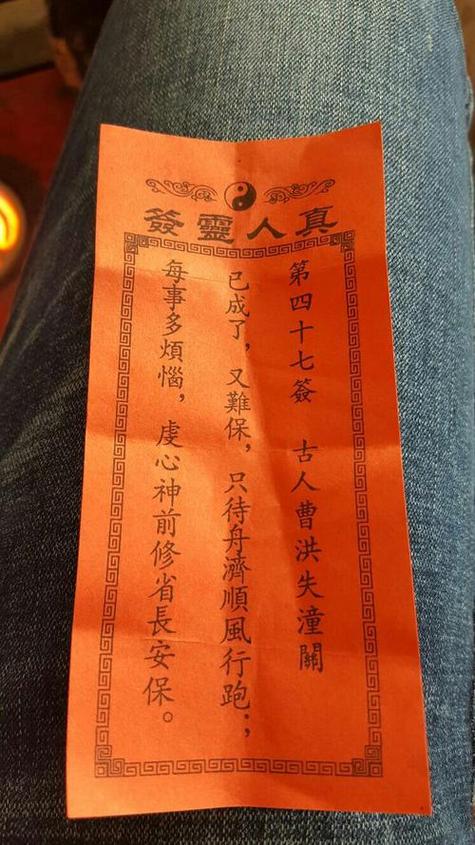 真人靈簽
第四十七簽　古人曹洪失潼關
已成了，又難保，只待舟濟順風行跑；，
每事多煩惱，虔心神前修省長安保。